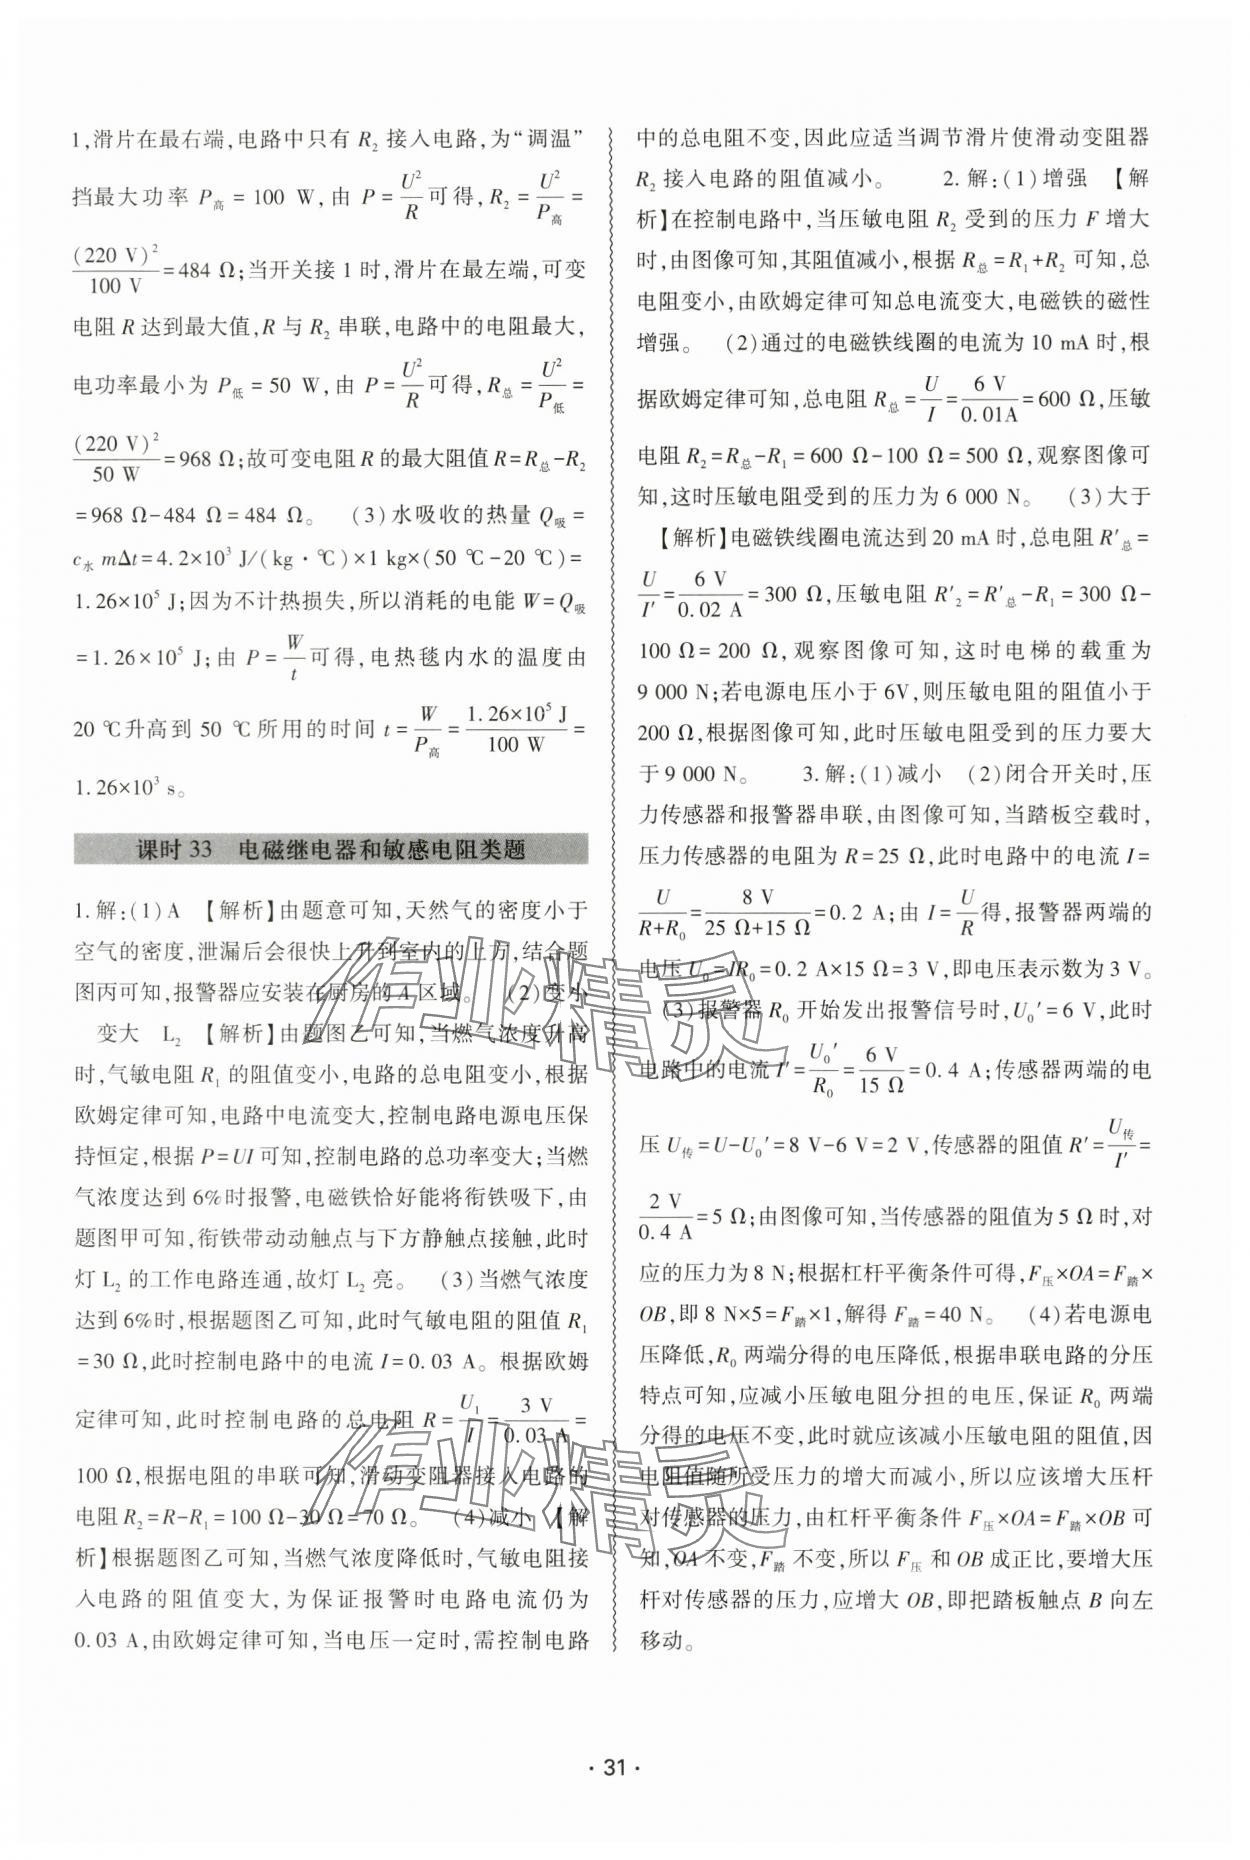 1,滑片在最右端,电路中只有 R₂ 接入电路,为“调温”
挡最大功率 P高 = 100 W,由 P = U²/R 可得,R₂ = U²/P高 =
(220 V)²/100 V = 484 Ω;当开关接 1 时,滑片在最左端,可变
电阻 R 达到最大值,R 与 R₂ 串联,电路中的电阻最大,
电功率最小为 P低 = 50 W,由 P = U²/R 可得,R总 = U²/P低 =
(220 V)²/50 W = 968 Ω;故可变电阻 R 的最大阻值 R=R总-R₂
= 968 Ω-484 Ω = 484 Ω。 (3)水吸收的热量 Q吸 =
c水 mΔt=4.2×10³ J/(kg·℃)×1 kg×(50 ℃-20 ℃)=
1.26×10⁵ J;因为不计热损失,所以消耗的电能 W=Q吸
=1.26×10⁵ J;由 P = W/t 可得,电热毯内水的温度由
20 ℃升高到 50 ℃所用的时间 t = W/P高 = 1.26×10⁵ J/100 W =
1.26×10³ s。
课时 33 电磁继电器和敏感电阻类题
1.解:(1)A 【解析】由题意可知,天然气的密度小于
空气的密度,泄漏后会很快上升到室内的上方,结合题
图丙可知,报警器应安装在厨房的 A 区域。 (2)变小
变大 L₂ 【解析】由题图乙可知,当燃气浓度升高
时,气敏电阻 R₁ 的阻值变小,电路的总电阻变小,根据
欧姆定律可知,电路中电流变大,控制电路电源电压保
持恒定,根据 P=UI 可知,控制电路的总功率变大;当燃
气浓度达到 6%时报警,电磁铁恰好能将衔铁吸下,由
题图甲可知,衔铁带动动触点与下方静触点接触,此时
灯 L₂ 的工作电路连通,故灯 L₂ 亮。 (3)当燃气浓度
达到 6%时,根据题图乙可知,此时气敏电阻的阻值 R₁
=30 Ω,此时控制电路中的电流 I=0.03 A。根据欧姆
定律可知,此时控制电路的总电阻 R = U₁/I = 3 V/0.03 A =
100 Ω,根据电阻的串联可知,滑动变阻器接入电路的
电阻 R₂=R-R₁=100 Ω-30 Ω=70 Ω。 (4)减小 【解
析】根据题图乙可知,当燃气浓度降低时,气敏电阻接
入电路的阻值变大,为保证报警时电路电流仍为
0.03 A,由欧姆定律可知,当电压一定时,需控制电路
中的总电阻不变,因此应适当调节滑片使滑动变阻器
R₂ 接入电路的阻值减小。 2.解:(1)增强 【解
析】在控制电路中,当压敏电阻 R₂ 受到的压力 F 增大
时,由图像可知,其阻值减小,根据 R总=R₁+R₂ 可知,总
电阻变小,由欧姆定律可知总电流变大,电磁铁的磁性
增强。 (2)通过的电磁铁线圈的电流为 10 mA 时,根
据欧姆定律可知,总电阻 R总 = U/I = 6 V/0.01A = 600 Ω,压敏
电阻 R₂=R总-R₁=600 Ω-100 Ω=500 Ω,观察图像可
知,这时压敏电阻受到的压力为 6 000 N。 (3)大于
【解析】电磁铁线圈电流达到 20 mA 时,总电阻 R′总 =
U/I′ = 6 V/0.02 A = 300 Ω,压敏电阻 R′₂=R′总-R₁=300 Ω-
100 Ω=200 Ω,观察图像可知,这时电梯的载重为
9 000 N;若电源电压小于 6V,则压敏电阻的阻值小于
200 Ω,根据图像可知,此时压敏电阻受到的压力要大
于 9 000 N。 3.解:(1)减小 (2)闭合开关时,压
力传感器和报警器串联,由图像可知,当踏板空载时,
压力传感器的电阻为 R=25 Ω,此时电路中的电流 I=
U/(R+R₀) = 8 V/(25 Ω+15 Ω) = 0.2 A;由 I = U/R 得,报警器两端的
电压 U₀=IR₀=0.2 A×15 Ω=3 V,即电压表示数为 3 V。
(3)报警器 R₀ 开始发出报警信号时,U₀′=6 V,此时
电路中的电流 I′ = U₀′/R₀ = 6 V/15 Ω = 0.4 A;传感器两端的电
压 U传=U-U₀′=8 V-6 V=2 V,传感器的阻值 R′ = U传/I′ =
2 V/0.4 A = 5 Ω;由图像可知,当传感器的阻值为 5 Ω 时,对
应的压力为 8 N;根据杠杆平衡条件可得,F压×OA=F踏×
OB,即 8 N×5=F踏×1,解得 F踏=40 N。 (4)若电源电
压降低,R₀ 两端分得的电压降低,根据串联电路的分压
特点可知,应减小压敏电阻分担的电压,保证 R₀ 两端
分得的电压不变,此时就应该减小压敏电阻的阻值,因
电阻值随所受压力的增大而减小,所以应该增大压杆
对传感器的压力,由杠杆平衡条件 F压×OA=F踏×OB 可
知,OA 不变,F踏 不变,所以 F压 和 OB 成正比,要增大压
杆对传感器的压力,应增大 OB,即把踏板触点 B 向左
移动。
作业精灵
作业精灵
· 31 ·